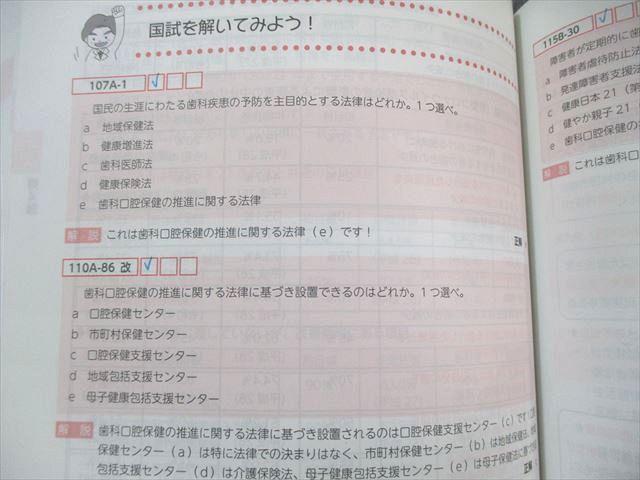 国試を解いてみよう！
107A-1
国民の生涯にわたる歯科疾患の予防を主目的とする法律はどれか。1つ選べ。
a 地域保健法
b 健康増進法
c 歯科医師法
d 健康保険法
e 歯科口腔保健の推進に関する法律
解説 これは歯科口腔保健の推進に関する法律（e）です！
正解
110A-86 改
歯科口腔保健の推進に関する法律に基づき設置できるのはどれか。1つ選べ。
a 口腔保健センター
b 市町村保健センター
c 口腔保健支援センター
d 地域包括支援センター
e 母子健康包括支援センター
解説 歯科口腔保健の推進に関する法律に基づき設置されるのは口腔保健支援センター（c）です
保健センター（a）は特に法律での決まりはなく、市町村保健センター（b）は地域保健法、
包括支援センター（d）は介護保険法、母子健康包括支援センター（e）は母子保健法に基づ
正解
115B-30
障害者が定期的に歯
a 障害者虐待防止法
b 発達障害者支援法
c 健康日本21（第
d 健やか親子21
e 歯科口腔保健の
解説 これは歯科口